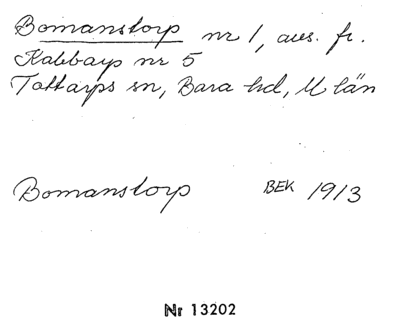 Bomanstorp nr 1, avs. fr.
Kabbarp nr 5
Tottarps sn, Bara hd, M län
Bomanstorp BEK 1913
Nr 13202